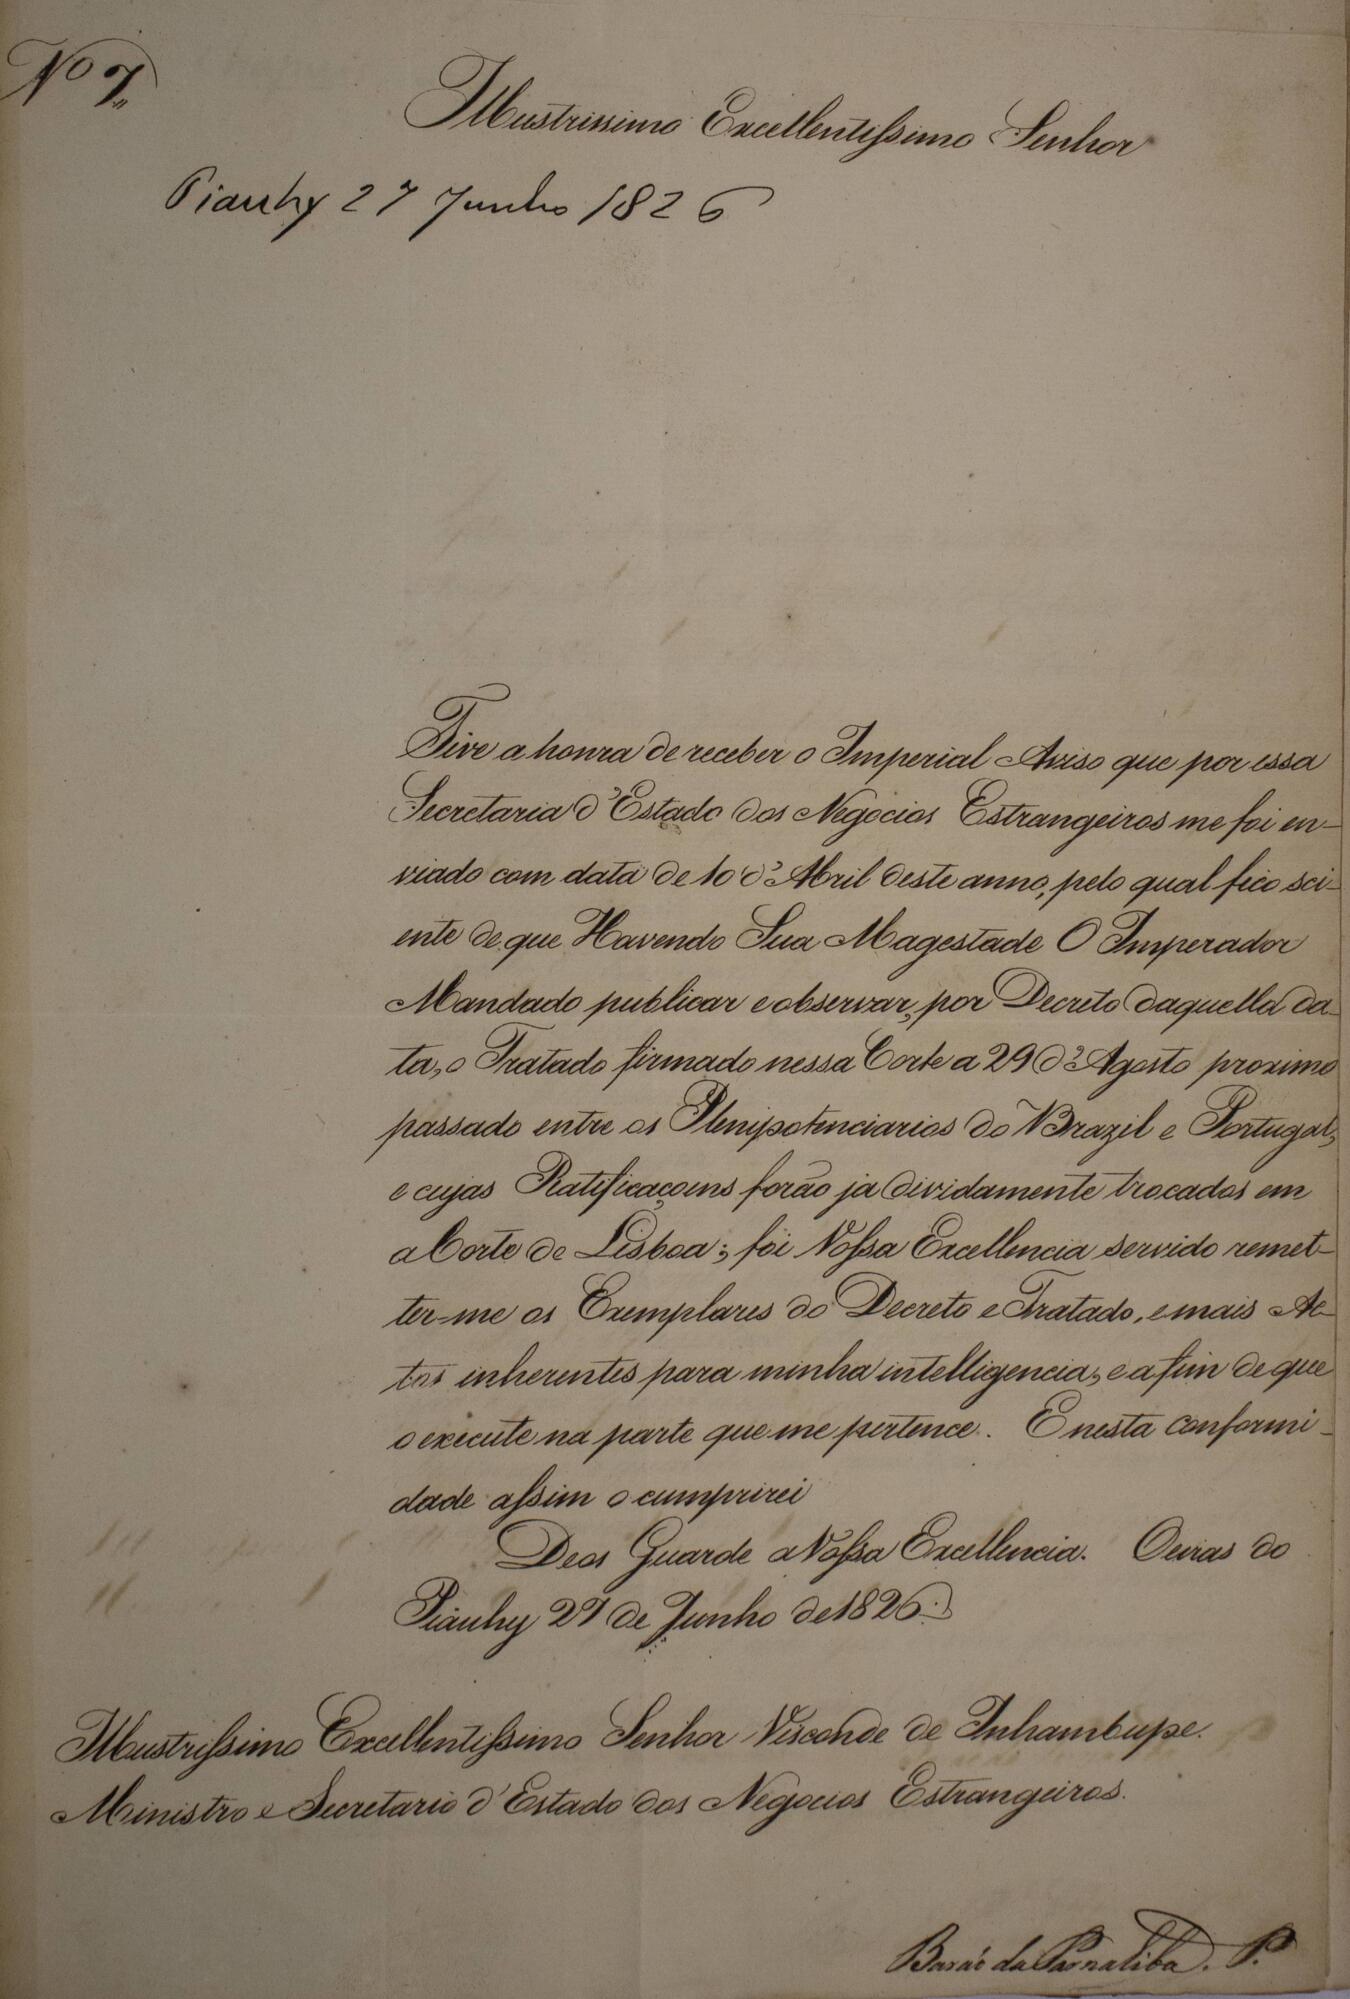 Nº 7,,
Illustrissimo Excellentissimo Senhor
Piauhy 27 Junho 1826
Tive a honra de receber o Imperial Aviso que por essa
Secretaria d'Estado dos Negocios Estrangeiros me foi en-
viado com data de 10 d'Abril deste anno, pelo qual fico sci-
ente de que Havendo Sua Magestade O Imperador
Mandado publicar e observar, por Decreto daquella da-
ta, o Tratado firmado nessa Corte a 29 d'Agosto proximo
passado entre os Plenipotenciarios do Brazil e Portugal,
e cujas Ratificaçoens forão ja dividamente trocados em
a Corte de Lisboa; foi Vossa Excellencia servido remet-
ter-me os Exemplares do Decreto e Tratado, e mais Ac-
tos inherentes para minha intelligencia, e a fim de que
o execute na parte que me pertence. E nesta conformi-
dade assim o cumprirei
Deos Guarde a Vossa Excellencia. Oeiras do
Piauhy 27 de Junho de 1826.
Illustrissimo Excellentissimo Senhor Visconde de Inhambupe.
Ministro e Secretario d'Estado dos Negocios Estrangeiros.
Barão da Parnahiba. P.